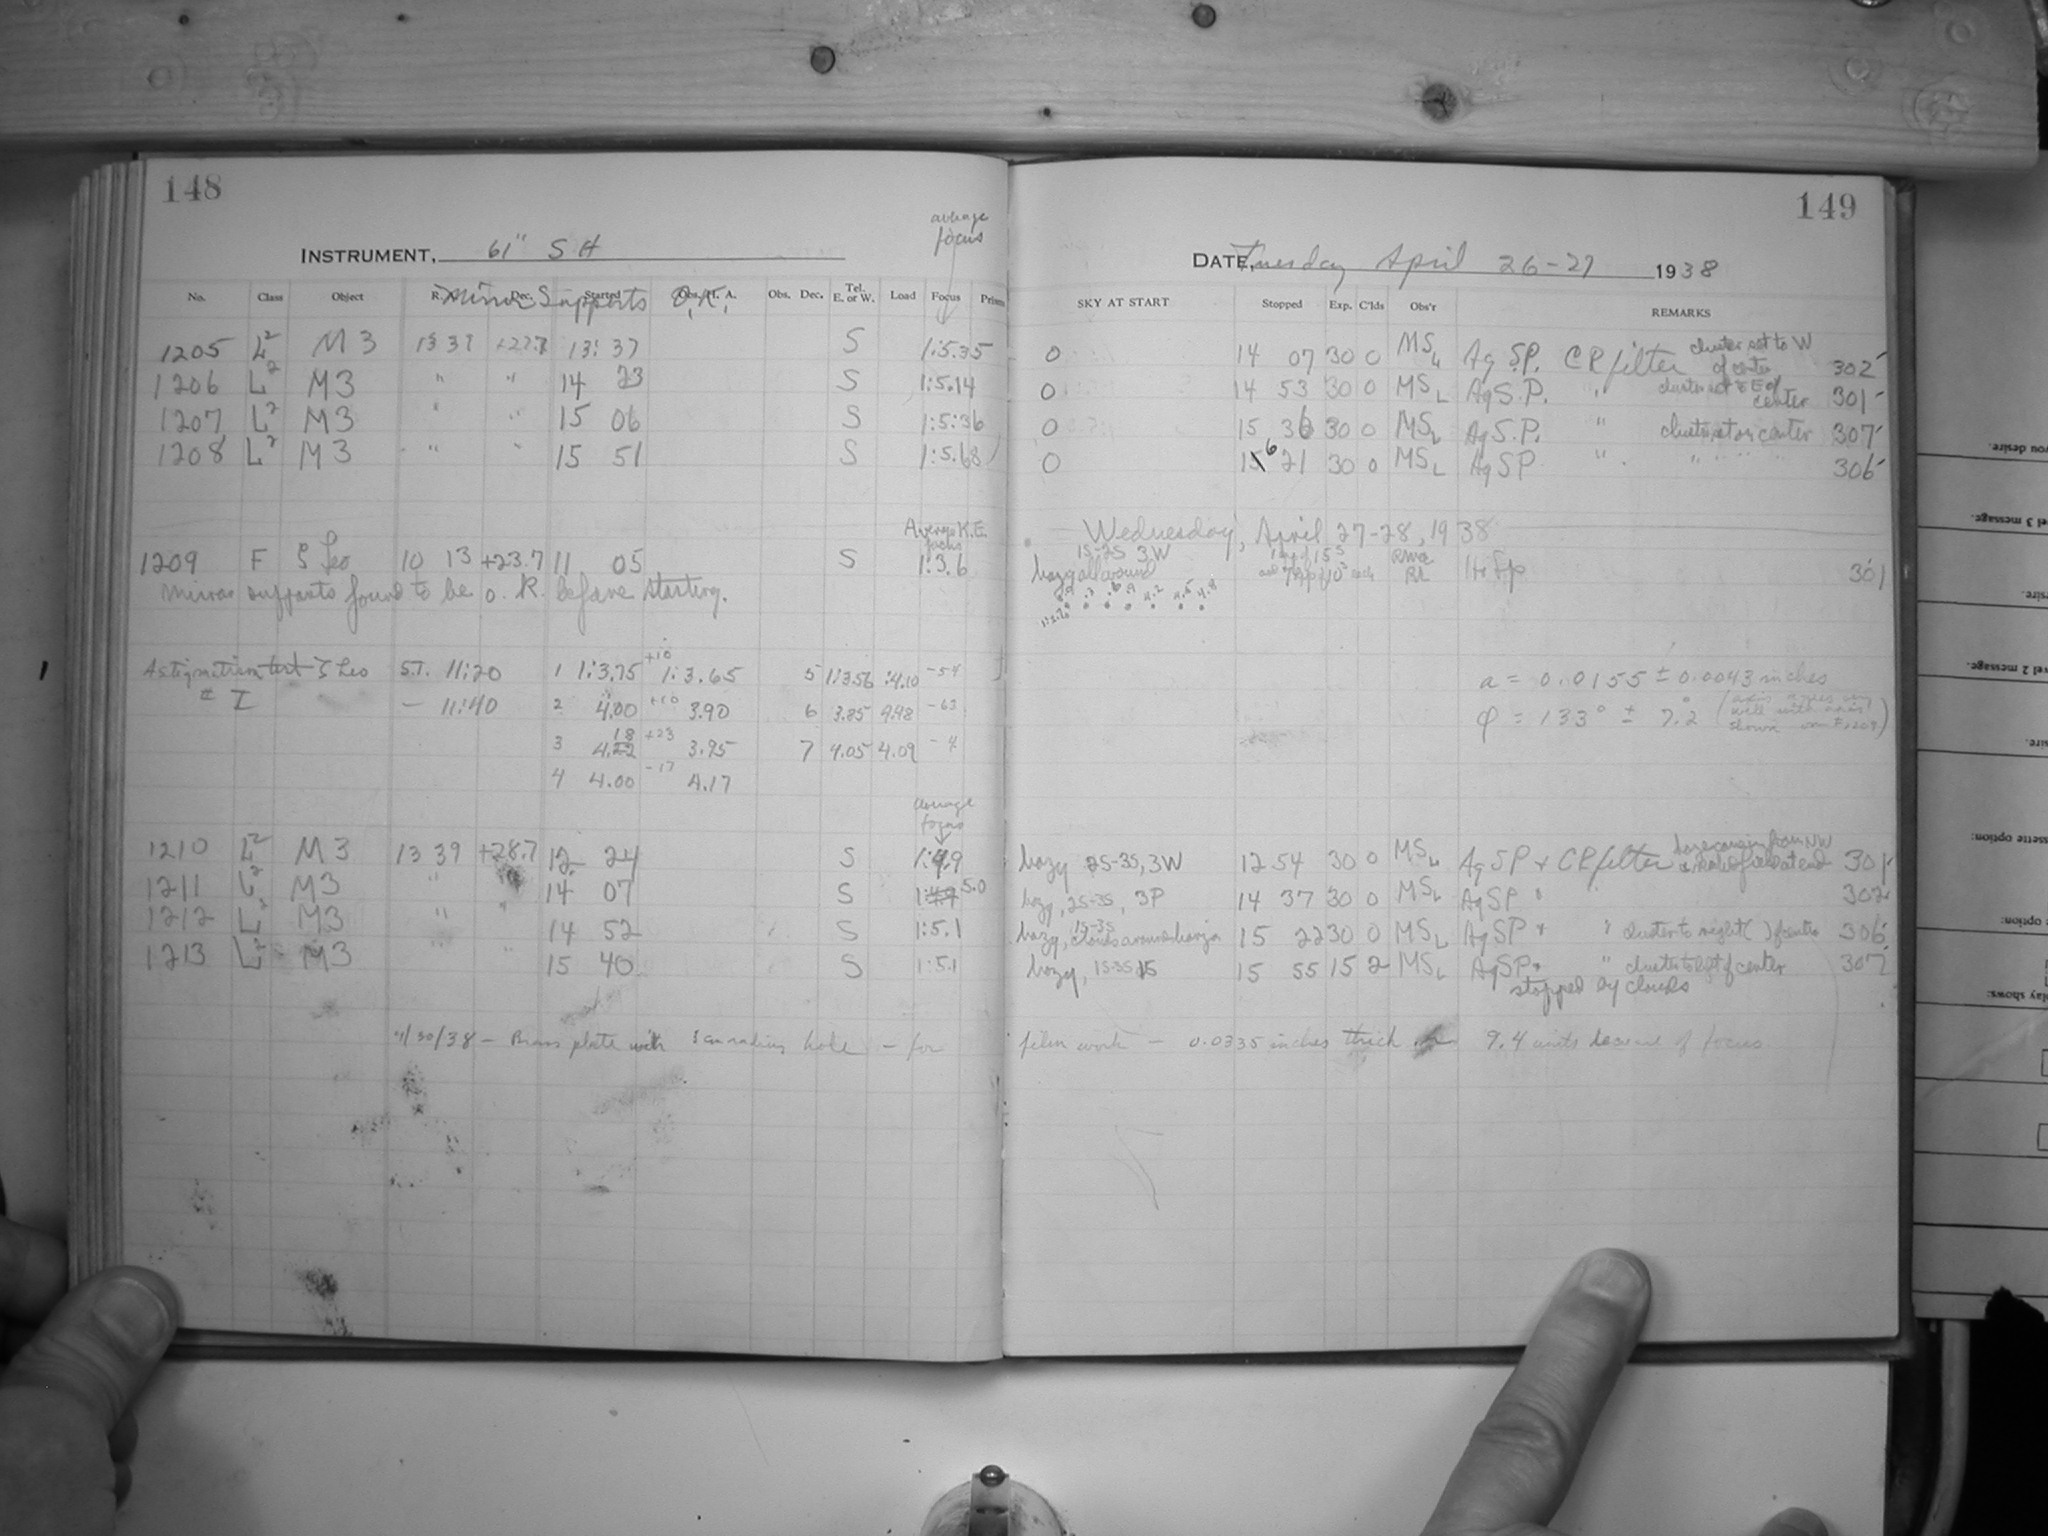 148
149
average
focus
INSTRUMENT, 61" S H
DATE, Tuesday April 26-27 1938
No. Class Object R. A. Dec. Started Obs. H. A. Obs. Dec. Tel. E. or W. Load Focus Prism
Mirror Supports O.K.
SKY AT START Stopped Exp. C'lds Obs'r REMARKS
1205 L² M 3 13 37 13: 37 S 1:5.35 0 14 07 30 0 MS Ag S.P. CR filter cluster set to W of center 302
1206 L² M3 " " 14 23 S 1:5.14 0 14 53 30 0 MSL Ag S.P. " cluster set to E of center 301
1207 L² M3 " " 15 06 S 1:5:36 0 15 36 30 0 MSL Ag S.P. " center 307
1208 L² M3 " " 15 51 S 1:5.68 0 16 21 30 0 MSL Ag SP " " " " 306
Wednesday, April 27-28, 1938
Average K.E.
focus
1209 F ζ Leo 10 13 +23.7 11 05 S 1:3.6 hazy all around 1S-2S 3W 301
Mirror supports found to be O.K. before starting.
Astigmatism test ζ Leo S.T. 11:20 1 1:3.75 +10 1:3.65 5 1:3.56 :4.10 -54
# I - 11:40 2 4.00 +10 3.90 6 3.85 4.48 -63
3 4.22 18 +23 3.95 7 4.05 4.09 -4
4 4.00 -17 4.17
a = 0.0155 ± 0.0043 inches
φ = 133° ± 7.2° (axis agrees very
well with axis
shown on #1209)
average
focus
1210 L² M 3 13 39 +28.7 12 24 S 1:4.9 hazy 2S-3S, 3W 12 54 30 0 MSL Ag SP + CR filter 301
1211 L² M3 " " 14 07 S 5.0 hazy, 2S-3S, 3P 14 37 30 0 MSL Ag SP " 302
1212 L² M3 " " 14 52 S 1:5.1 hazy, 1S-3S clouds around horizon 15 22 30 0 MSL Ag SP + " cluster to right ( ) of center 306
1213 L² M3 15 40 S 1:5.1 hazy, 1S-3S 15 55 15 2 MSL Ag SP + " cluster to left of center 307
stopped by clouds
/30/38 - Brass plate with hole - for film work - 0.0335 inches thick 9.4 units of focus